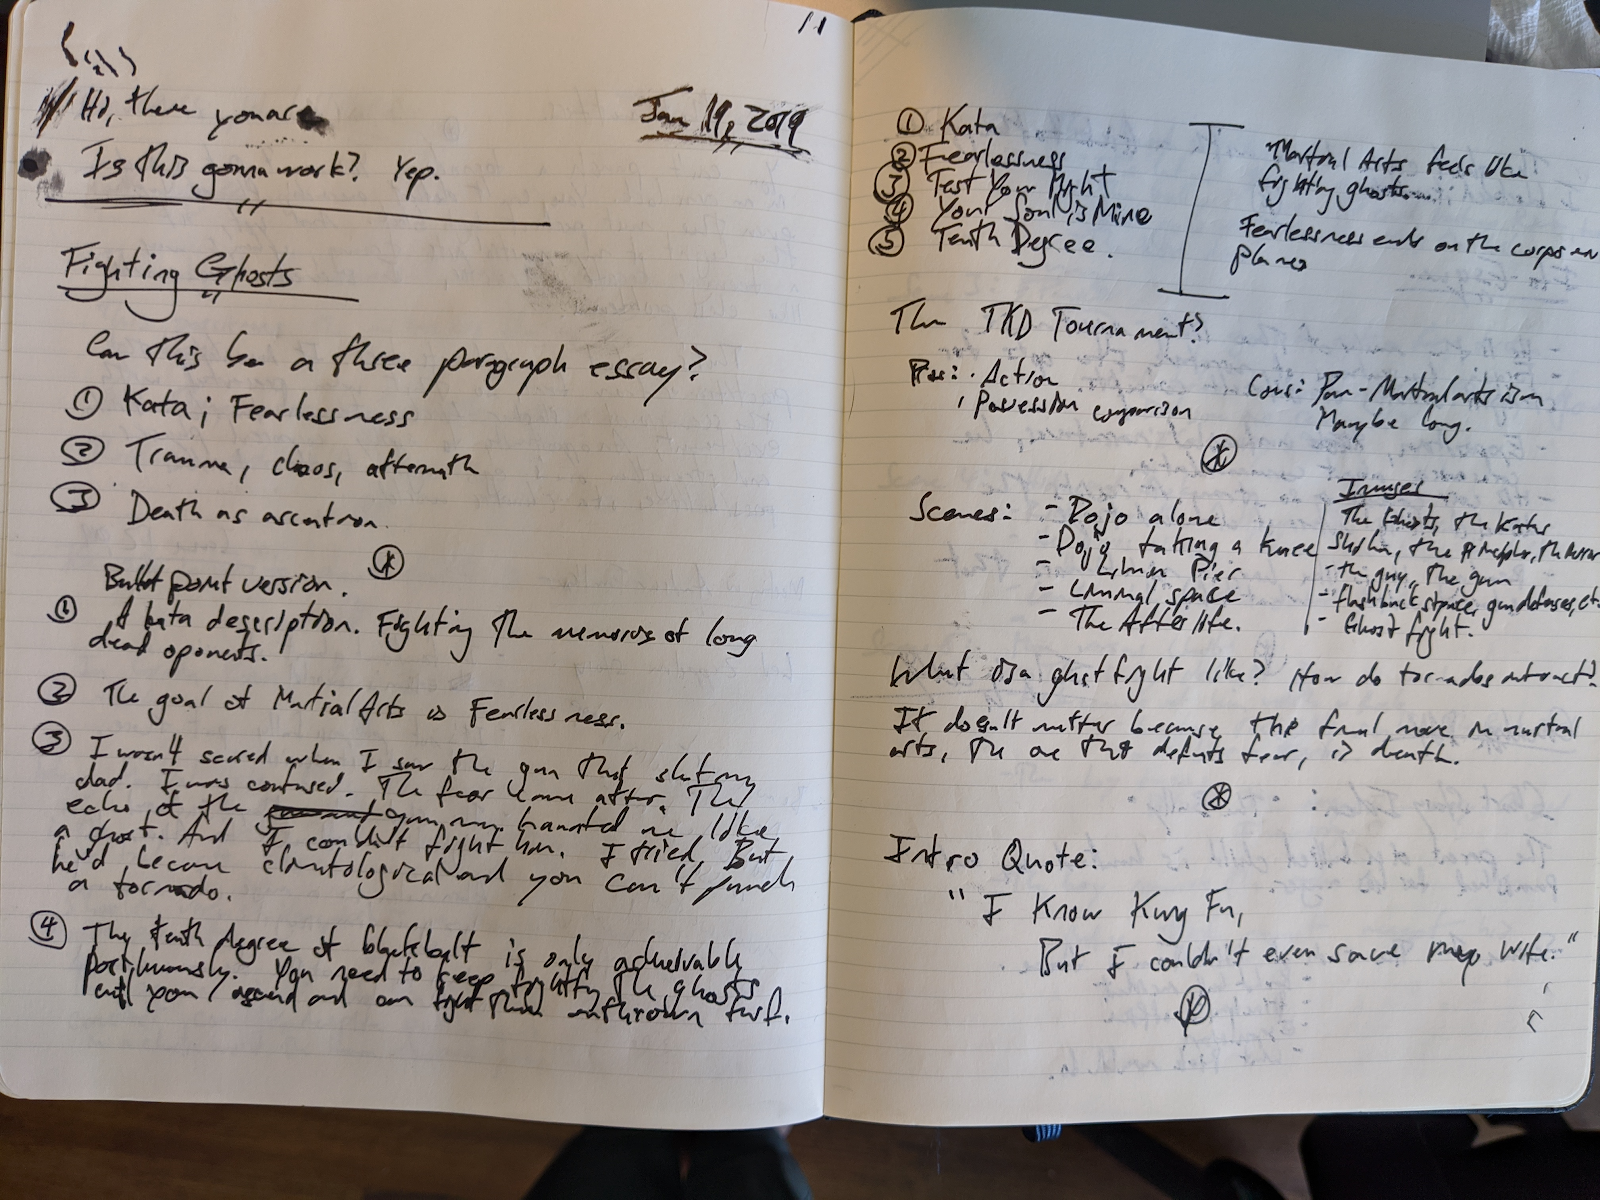 Hi, there you are
Jan 19, 2019
Is this gonna work? Yep.
Fighting Ghosts
Can this be a three paragraph essay?
① Kata; Fearlessness
② Trauma, chaos, aftermath
③ Death as
Bullet point version.
① A kata description. Fighting the memories of long
dead oponents.
② The goal of Martial Arts is Fearlessness.
③ I wasn't scared when I saw the gun that shot my
dad. I was confused. The fear came after. The
echo of the gun man haunted me like
a ghost. And I couldn't fight him. I tried, But
he'd become climatological and you can't punch
a tornado.
④ The tenth degree of blackbelt is only achievable
posthumously. You need to keep fighting the ghosts
until you ascend and can fight them on their own turf.
11
① Kata
② Fearlessness
③ Test Your Might
④ Your Soul is Mine
⑤ Tenth Degree.
"Martial Arts feels like
fighting ghosts...
Fearlessness ends on the
planes
The TKD Tournament?
Pros: · Action
· Possession comparison
Cons: Pan-Martial arts ism
Maybe long.
Scenes: - Dojo alone
- Dojo taking a knee
- Pier
- Liminal space
- The Afterlife.
Images
The Ghosts, the Kata
the
- the guy, the gun
- flashback space, gun defenses, etc.
- Ghost fight.
What is a ghost fight like? How do tornados interact?
It doesn't matter because the final move in martial
arts, the one that defeats fear, is death.
Intro Quote:
"I Know Kung Fu,
But I couldn't even save my wife."